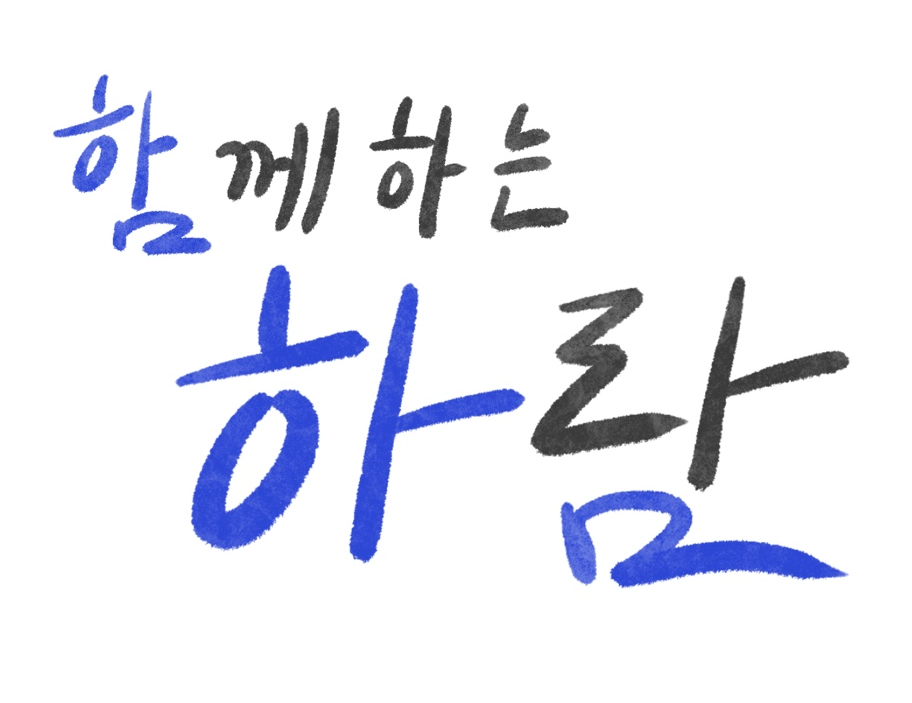 함께 하는
하람